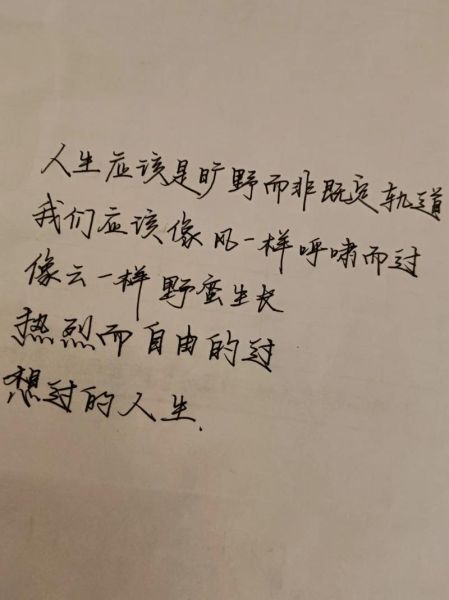 人生应该是旷野而非既定轨道
我们应该像风一样呼啸而过
像云一样野蛮生长
热烈而自由的过
想过的人生.